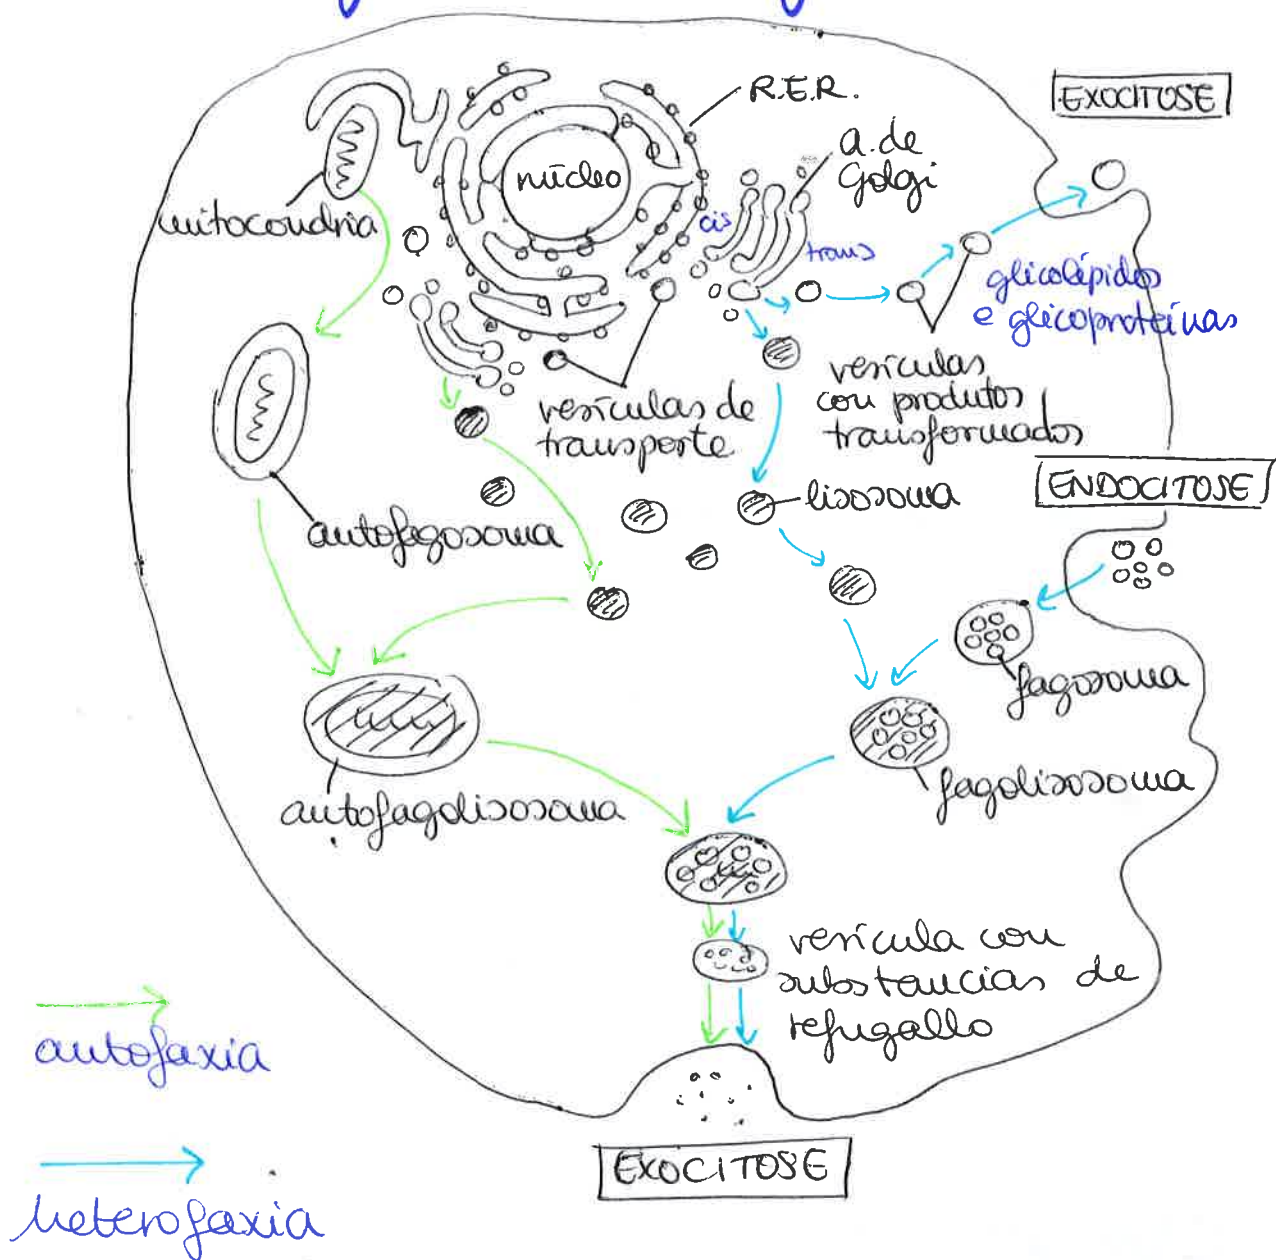 R.E.R.
EXOCITOSE
a. de
Golgi
núcleo
mitocondria
cis
trans
glicolípidos
e glicoproteínas
vesículas de
transporte
vesículas
con produtos
transformados
lisosoma
ENDOCITOSE
autofagosoma
fagosoma
fagolisosoma
autofagolisosoma
vesícula con
substancias de
refugallo
autofaxia
EXOCITOSE
heterofaxia